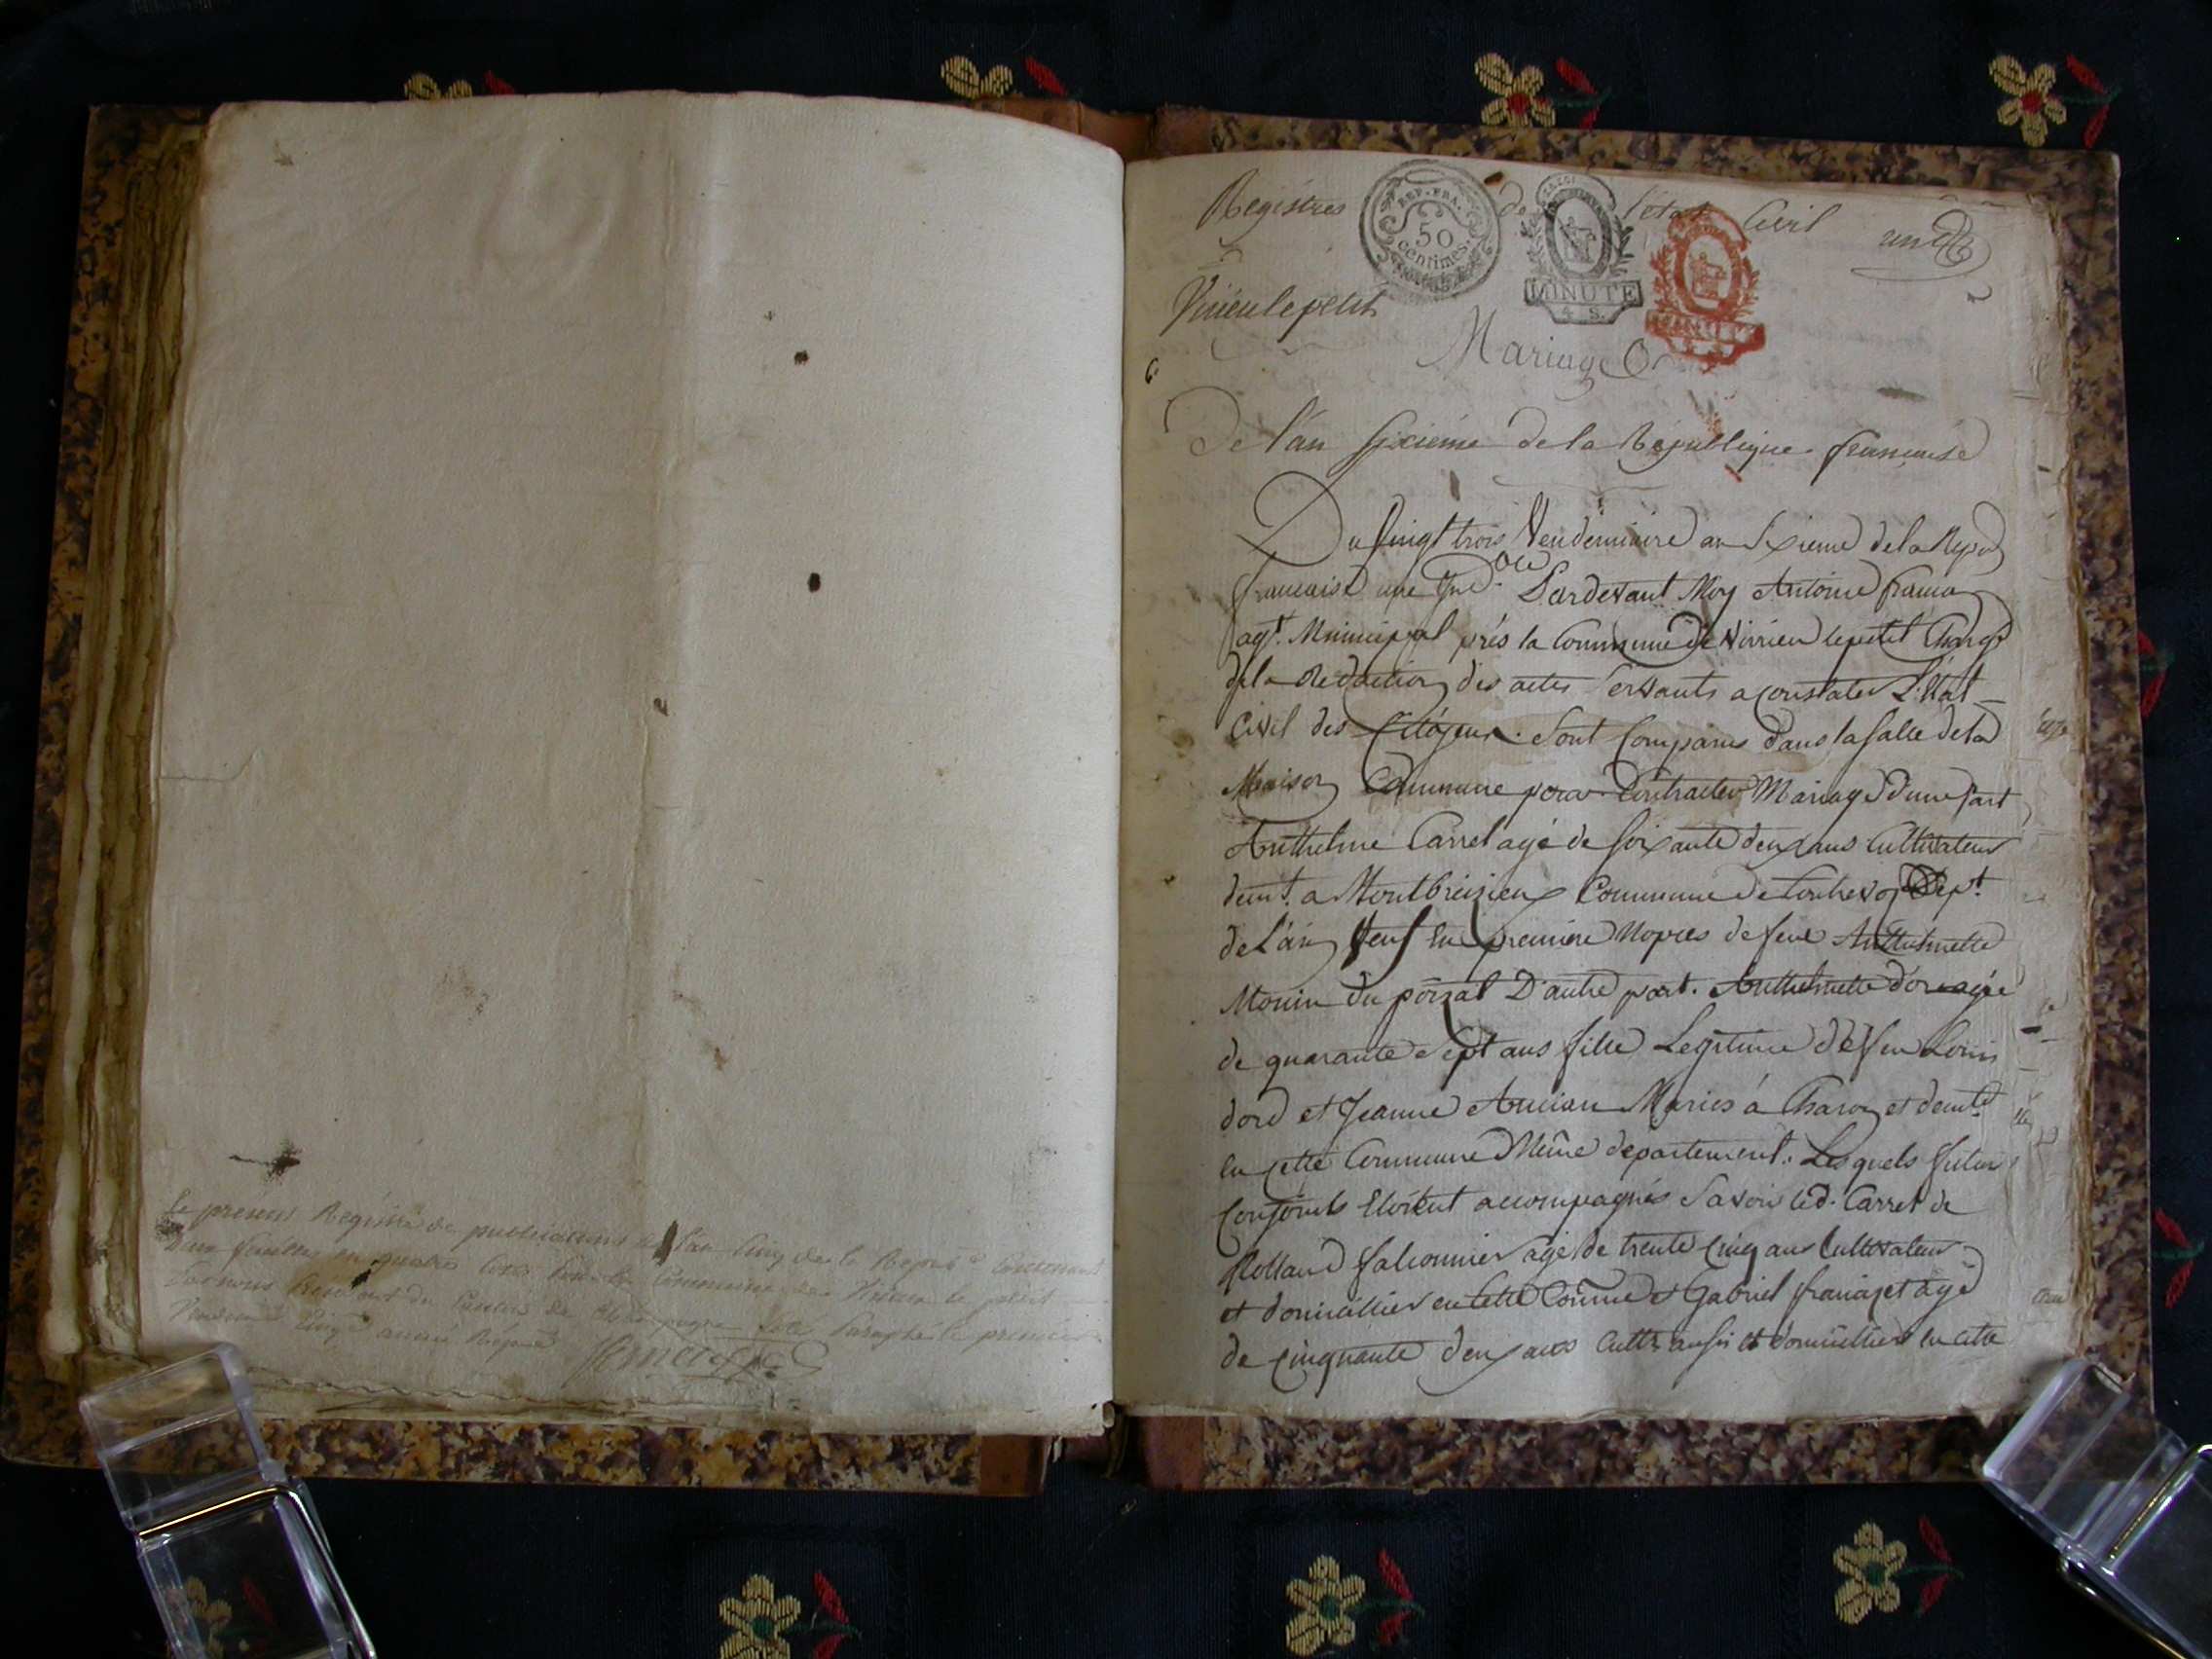 Le présent Registre de publications de l'an Cinq de la Repub.e Contenant
Deux feuilles en quatre
par nous President du Canton de
Vendem.
Registres de l'état Civil un
REP. FRA.
50
centimes
MINUTE
4 S.
MINUTE
Virieu le petit
Mariage
De l'an Sixième de la République française
Du Vingt trois Vendemiaire an Sixieme de la Repub
francaise une Ind.ble Pardevant Moy Antoine
agt. Municipal près la Commune de Virrieu lepetit Chargé
de la Redaction des actes Servants a constater L'état
Civil des Citoyens. Sont Comparus dans la Salle de la
Maison Commune pour Contracter Mariage D'une part
Anthelme Carret agé de soixante deux ans Cultivateur
demt. a Montbreizieu Commune de Dept.
de L'ain Veuf en première Nopces de feue Anthelmette
Monin du poizat D'autre part. Anthelmette d'ord agée
de quarante Sept ans fille Legitime De feu Louis
dord et Jeanne Ancian Mariés à et demte
en cette Commune Même departement. Lesquels futurs
Conjoints Etoient accompagnés Savoir led. Carret de
Rolland falconnier agé de trente Cinq ans Cultivateur
et domicillier en Cette Comune et Gabriel françet agé
de Cinquante deux ans Cultr aussi et domicillier en cette